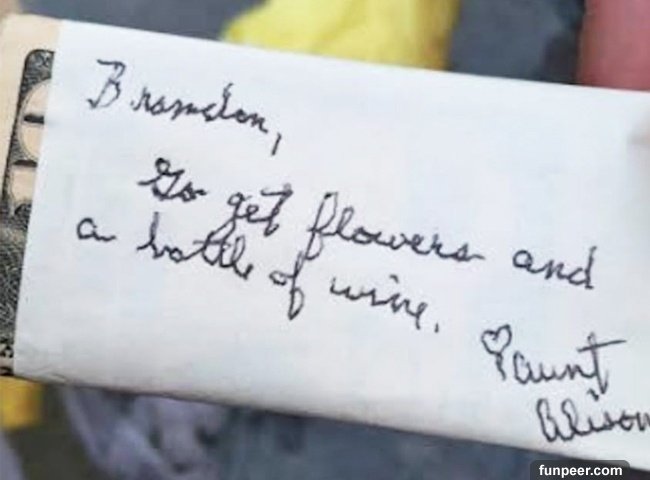 Brandon,
Go get flowers and
a bottle of wine.
♡ aunt
Alison
funpeer.com